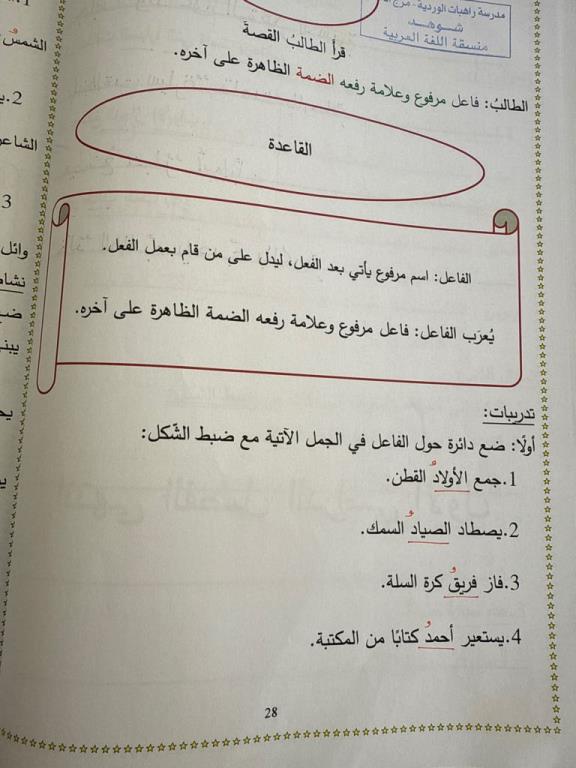 مدرسة راهبات الوردية - مرج
شوهد
منسقة اللغة العربية
قرأ الطالبُ القصةَ
الطالبُ: فاعل مرفوع وعلامة رفعه الضمة الظاهرة على آخره.
القاعدة
الفاعل: اسم مرفوع يأتي بعد الفعل، ليدل على من قام بعمل الفعل.
يُعرَب الفاعل: فاعل مرفوع وعلامة رفعه الضمة الظاهرة على آخره.
تدريبات:
أولًا: ضع دائرة حول الفاعل في الجمل الآتية مع ضبط الشّكل:
1.جمع الأولادُ القطن.
2.يصطاد الصيادُ السمك.
3.فاز فريقُ كرة السلة.
4.يستعير أحمدُ كتابًا من المكتبة.
28
الشمس
2.
الشاعر
3
وائل